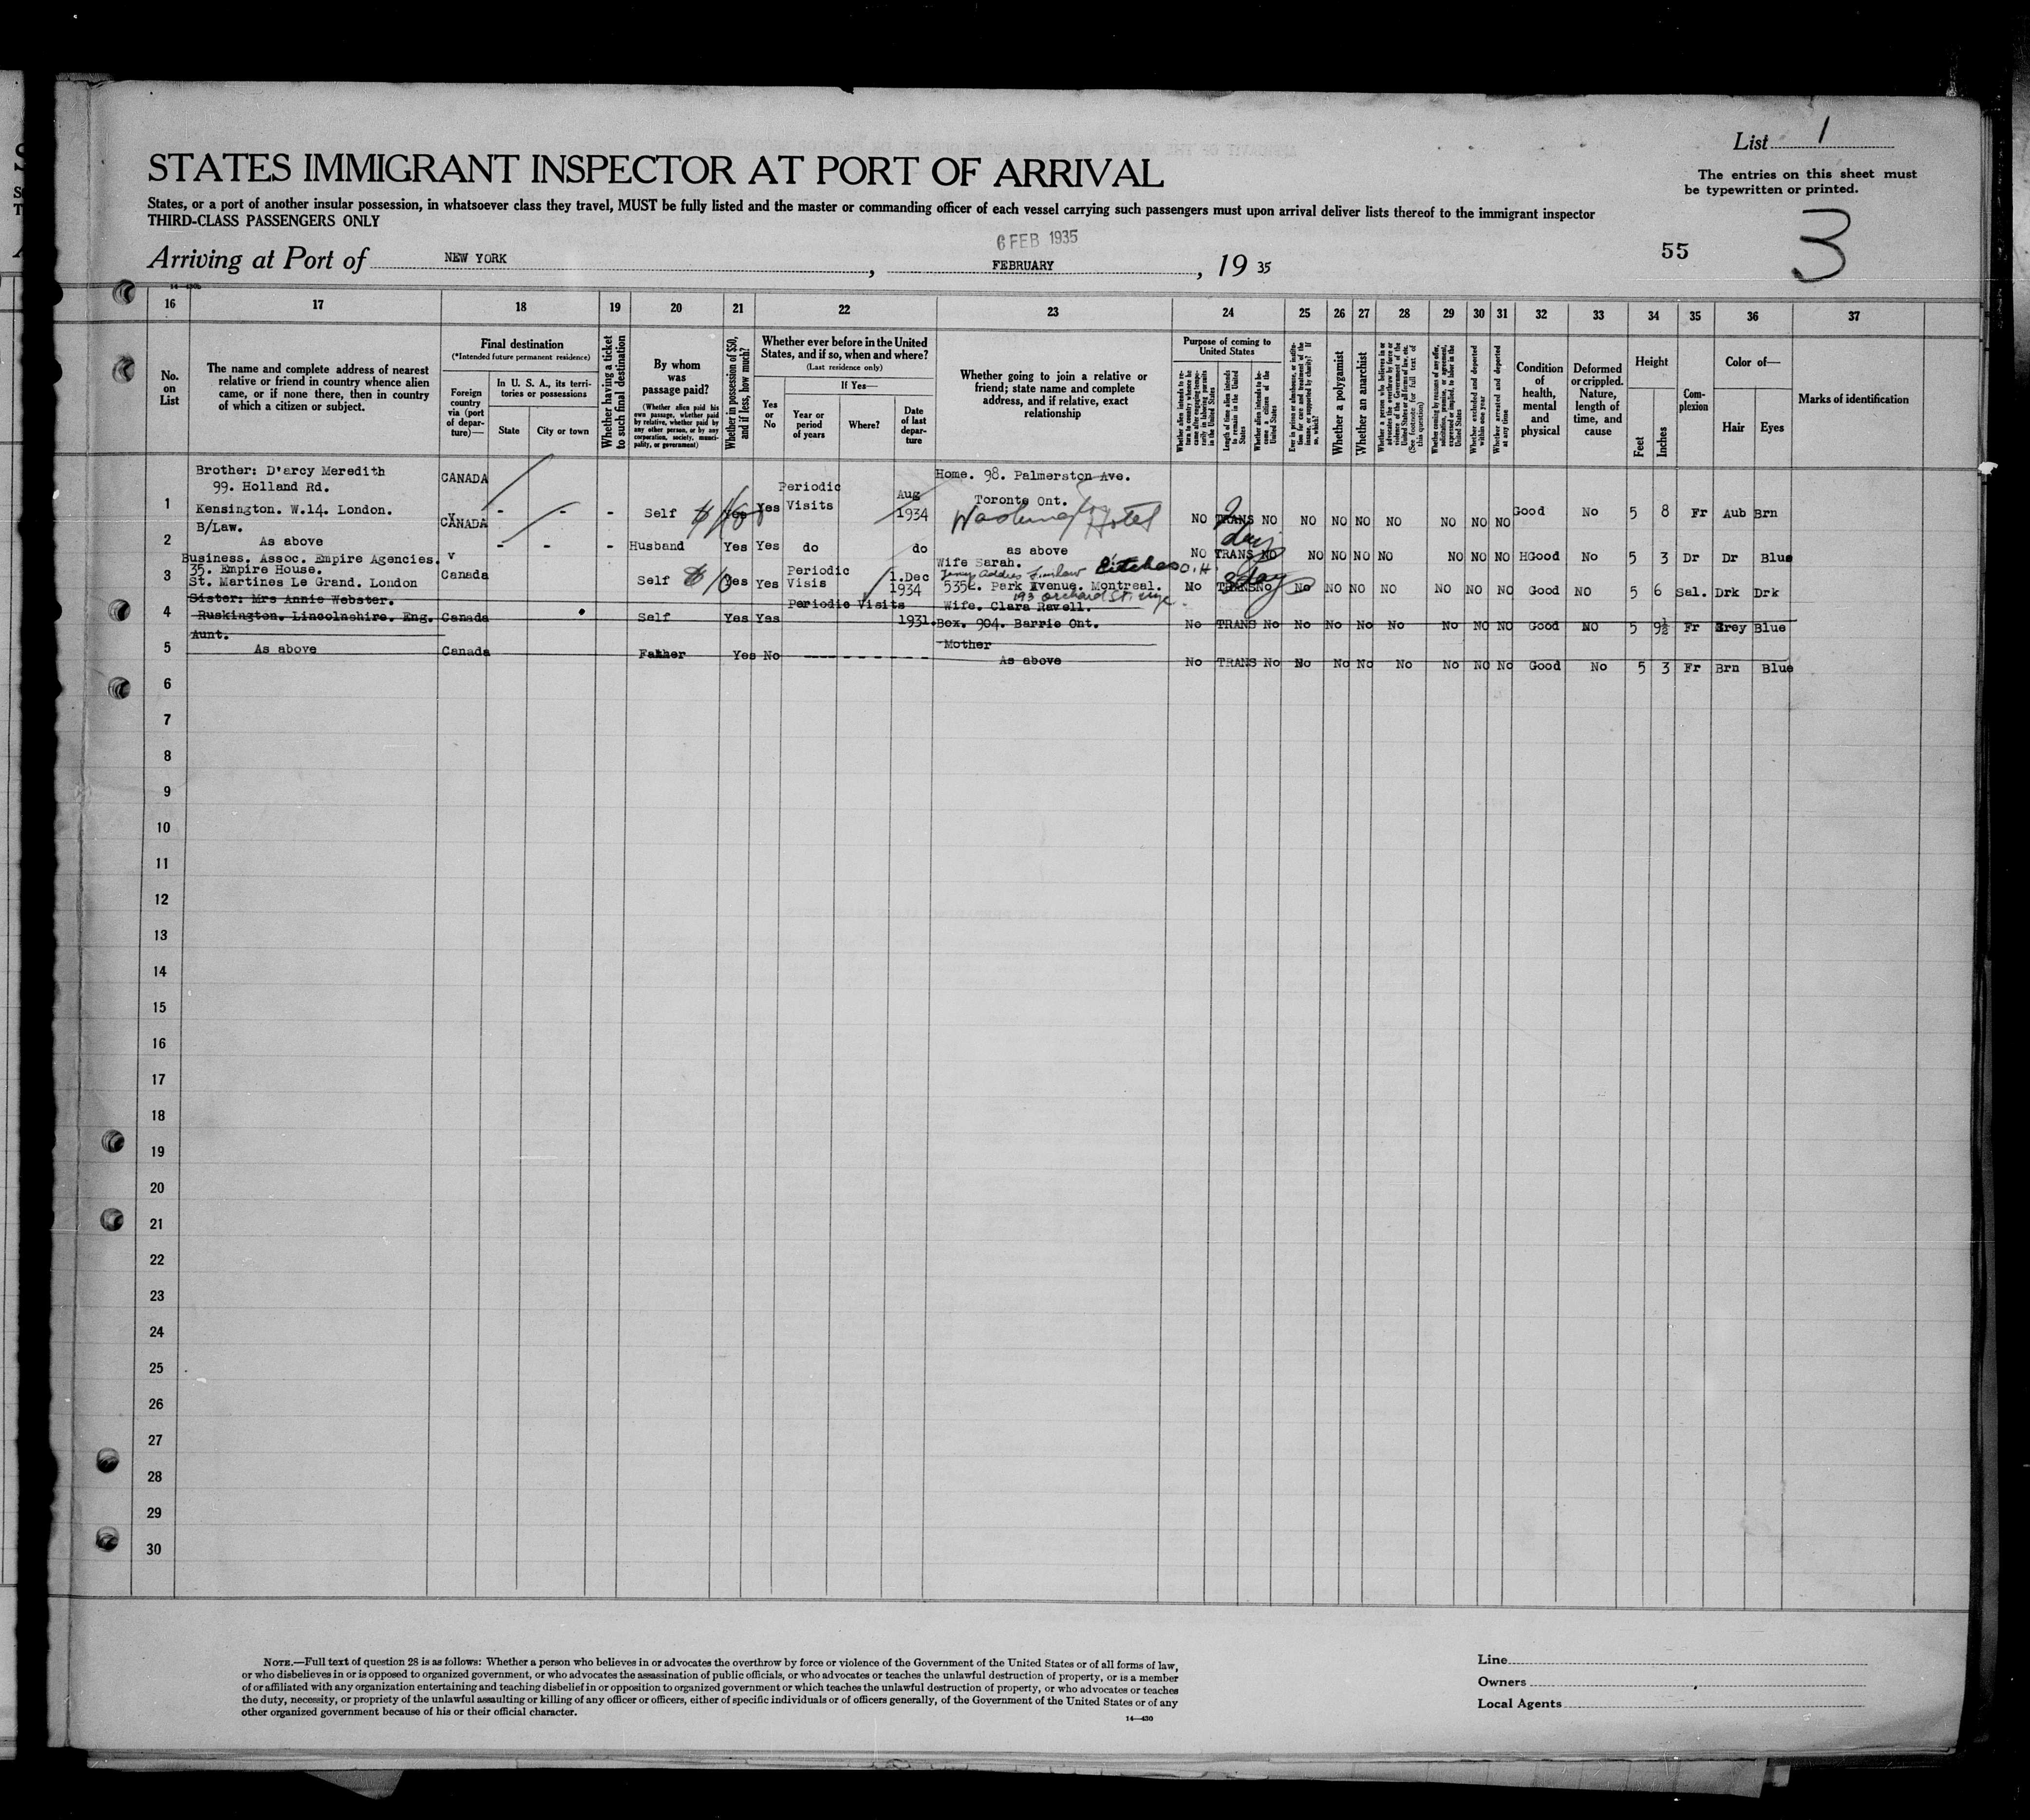 List 1
STATES IMMIGRANT INSPECTOR AT PORT OF ARRIVAL
The entries on this sheet must
be typewritten or printed.
States, or a port of another insular possession, in whatsoever class they travel, MUST be fully listed and the master or commanding officer of each vessel carrying such passengers must upon arrival deliver lists thereof to the immigrant inspector
THIRD-CLASS PASSENGERS ONLY
6 FEB 1935
55
3
Arriving at Port of NEW YORK, FEBRUARY, 19 35
16 17 18 19 20 21 22 23 24 25 26 27 28 29 30 31 32 33 34 35 36 37
No. on List
The name and complete address of nearest
relative or friend in country whence alien
came, or if none there, then in country
of which a citizen or subject.
Final destination
(*Intended future permanent residence)
Foreign
country
via (port
of depar-
ture)—
In U. S. A., its terri-
tories or possessions
State
City or town
Whether having a ticket
to such final destination
By whom
was
passage paid?
(Whether alien paid his
own passage, whether paid
by relative, whether paid by
any other person, or by any
corporation, society, munici-
pality, or government)
Whether in possession of $50,
and if less, how much?
Whether ever before in the United
States, and if so, when and where?
(Last residence only)
Yes
or
No
If Yes—
Year or
period
of years
Where?
Date
of last
depar-
ture
Whether going to join a relative or
friend; state name and complete
address, and if relative, exact
relationship
Purpose of coming to
United States
Length of time alien intends
to remain in the United
States
Whether alien intends to be-
come a citizen of the
United States
Whether a polygamist
Whether an anarchist
Whether excluded and deported
within one year
Whether arrested and deported
at any time
Condition
of
health,
mental
and
physical
Deformed
or crippled.
Nature,
length of
time, and
cause
Height
Feet
Inches
Com-
plexion
Color of—
Hair
Eyes
Marks of identification
Brother: D'arcy Meredith CANADA Home. 98. Palmerston Ave.
99. Holland Rd. Periodic Aug Toronto Ont.
1 Kensington. W.14. London. - - - Self Yes Yes Visits 1934 Washington Hotel NO TRANS NO NO NO NO NO NO NO NO Good No 5 8 Fr Aub Brn
2 days
B/Law. CANADA
2 As above - - - Husband Yes Yes do do as above NO TRANS NO NO NO NO NO NO NO NO HGood No 5 3 Dr Dr Blue
Business. Assoc. Empire Agencies. v Wife Sarah.
35. Empire House. Periodic 1.Dec
3 St. Martines Le Grand. London Canada Self Yes Yes Visis 1934 535. Park Avenue. Montreal. No TRANS No No NO NO NO NO NO NO Good NO 5 6 Sal. Drk Drk
193 Orchard St.
Sister: Mrs Annie Webster. Periodic Visits Wife. Clara Ravell.
4 Ruskington. Lincolnshire. Eng. Canada Self Yes Yes 1931. Box. 904. Barrie Ont. No TRANS No No No No No No NO No Good NO 5 9½ Fr Grey Blue
Aunt. Mother
5 As above Canada Father Yes No - - - - - - - As above No TRANS No No No No No No NO No Good No 5 3 Fr Brn Blue
6
7
8
9
10
11
12
13
14
15
16
17
18
19
20
21
22
23
24
25
26
27
28
29
30
NOTE.—Full text of question 28 is as follows: Whether a person who believes in or advocates the overthrow by force or violence of the Government of the United States or of all forms of law,
or who disbelieves in or is opposed to organized government, or who advocates the assassination of public officials, or who advocates or teaches the unlawful destruction of property, or is a member
of or affiliated with any organization entertaining and teaching disbelief in or opposition to organized government or which teaches the unlawful destruction of property, or who advocates or teaches
the duty, necessity, or propriety of the unlawful assaulting or killing of any officer or officers, either of specific individuals or of officers generally, of the Government of the United States or of any
other organized government because of his or their official character.
14—430
Line
Owners
Local Agents